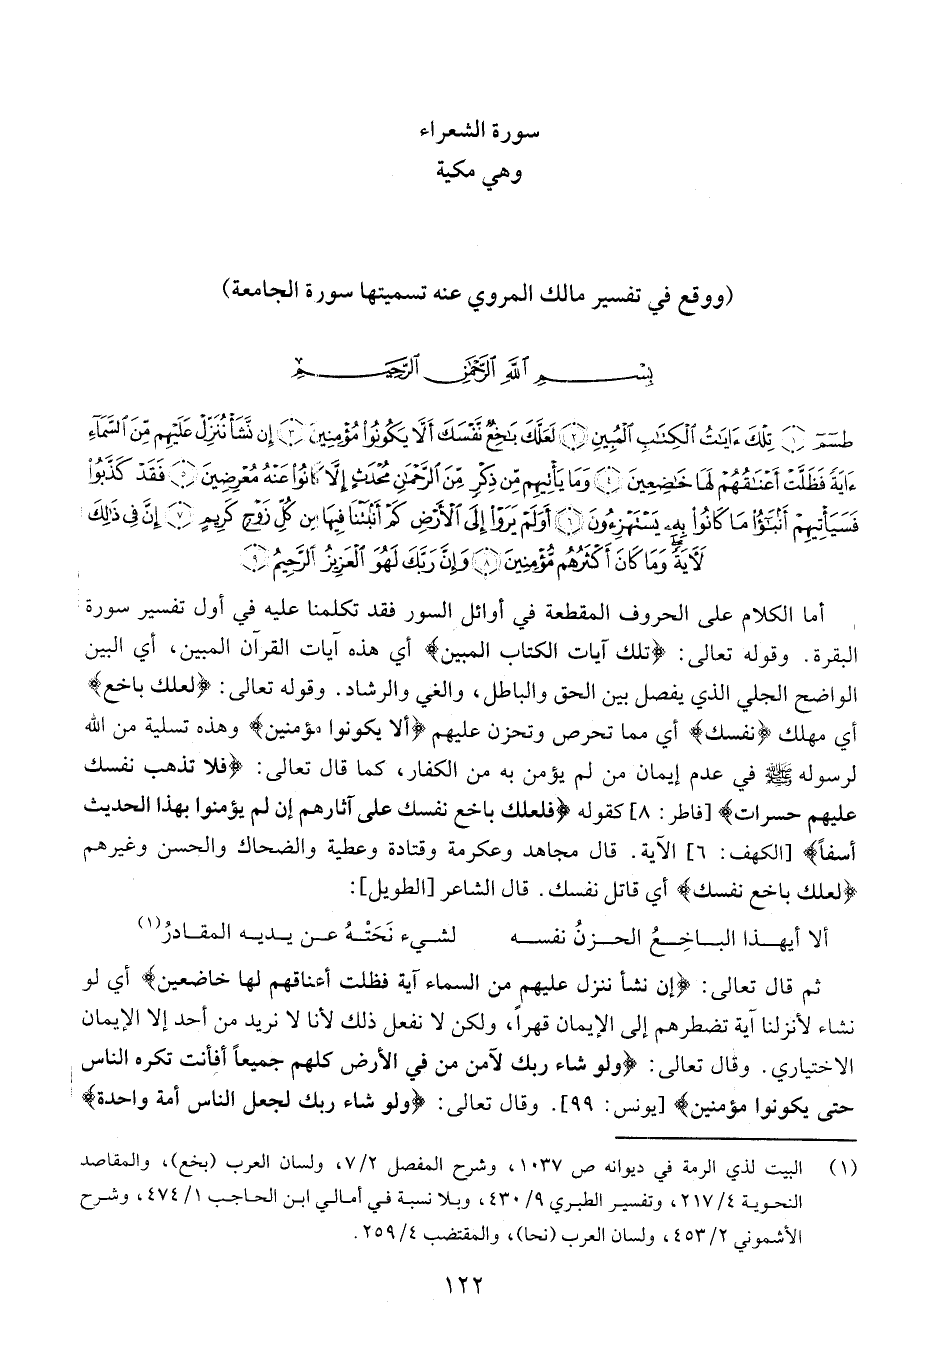 سورة الشعراء
وهي مكية
(ووقع في تفسير مالك المروي عنه تسميتها سورة الجامعة)
بِسْمِ اللَّهِ الرَّحْمَٰنِ الرَّحِيمِ
طسٓمٓ ﴿١﴾ تِلْكَ ءَايَٰتُ ٱلْكِتَٰبِ ٱلْمُبِينِ ﴿٢﴾ لَعَلَّكَ بَٰخِعٌ نَّفْسَكَ أَلَّا يَكُونُوا۟ مُؤْمِنِينَ ﴿٣﴾ إِن نَّشَأْ نُنَزِّلْ عَلَيْهِم مِّنَ ٱلسَّمَآءِ
ءَايَةً فَظَلَّتْ أَعْنَٰقُهُمْ لَهَا خَٰضِعِينَ ﴿٤﴾ وَمَا يَأْتِيهِم مِّن ذِكْرٍ مِّنَ ٱلرَّحْمَٰنِ مُحْدَثٍ إِلَّا كَانُوا۟ عَنْهُ مُعْرِضِينَ ﴿٥﴾ فَقَدْ كَذَّبُوا۟
فَسَيَأْتِيهِمْ أَنۢبَٰٓؤُا۟ مَا كَانُوا۟ بِهِۦ يَسْتَهْزِءُونَ ﴿٦﴾ أَوَلَمْ يَرَوْا۟ إِلَى ٱلْأَرْضِ كَمْ أَنۢبَتْنَا فِيهَا مِن كُلِّ زَوْجٍ كَرِيمٍ ﴿٧﴾ إِنَّ فِى ذَٰلِكَ
لَـَٔايَةً ۖ وَمَا كَانَ أَكْثَرُهُم مُّؤْمِنِينَ ﴿٨﴾ وَإِنَّ رَبَّكَ لَهُوَ ٱلْعَزِيزُ ٱلرَّحِيمُ ﴿٩﴾
أما الكلام على الحروف المقطعة في أوائل السور فقد تكلمنا عليه في أول تفسير سورة
البقرة. وقوله تعالى: ﴿تلك آيات الكتاب المبين﴾ أي هذه آيات القرآن المبين، أي البين
الواضح الجلي الذي يفصل بين الحق والباطل، والغي والرشاد. وقوله تعالى: ﴿لعلك باخع﴾
أي مهلك ﴿نفسك﴾ أي مما تحرص وتحزن عليهم ﴿ألا يكونوا مؤمنين﴾ وهذه تسلية من الله
لرسوله ﷺ في عدم إيمان من لم يؤمن به من الكفار، كما قال تعالى: ﴿فلا تذهب نفسك
عليهم حسرات﴾ [فاطر: ٨] كقوله ﴿فلعلك باخع نفسك على آثارهم إن لم يؤمنوا بهذا الحديث
أسفاً﴾ [الكهف: ٦] الآية. قال مجاهد وعكرمة وقتادة وعطية والضحاك والحسن وغيرهم
﴿لعلك باخع نفسك﴾ أي قاتل نفسك. قال الشاعر [الطويل]:
ألا أيهـذا البـاخِـعُ الحـزنُ نفسـه لشـيء نَحَتْـهُ عـن يـديـه المقـادرُ(١)
ثم قال تعالى: ﴿إن نشأ ننزل عليهم من السماء آية فظلت أعناقهم لها خاضعين﴾ أي لو
نشاء لأنزلنا آية تضطرهم إلى الإيمان قهراً، ولكن لا نفعل ذلك لأنا لا نريد من أحد إلا الإيمان
الاختياري. وقال تعالى: ﴿ولو شاء ربك لآمن من في الأرض كلهم جميعاً أفأنت تكره الناس
حتى يكونوا مؤمنين﴾ [يونس: ٩٩]. وقال تعالى: ﴿ولو شاء ربك لجعل الناس أمة واحدة﴾
(١) البيت لذي الرمة في ديوانه ص ١٠٣٧، وشرح المفصل ٧/٢، ولسان العرب (بخع)، والمقاصد
النحوية ٢١٧/٤، وتفسير الطبري ٤٣٠/٩، وبلا نسبة في أمالي ابن الحاجب ٤٧٤/١، وشرح
الأشموني ٤٥٣/٢، ولسان العرب (نحا)، والمقتضب ٢٥٩/٤.
١٢٢